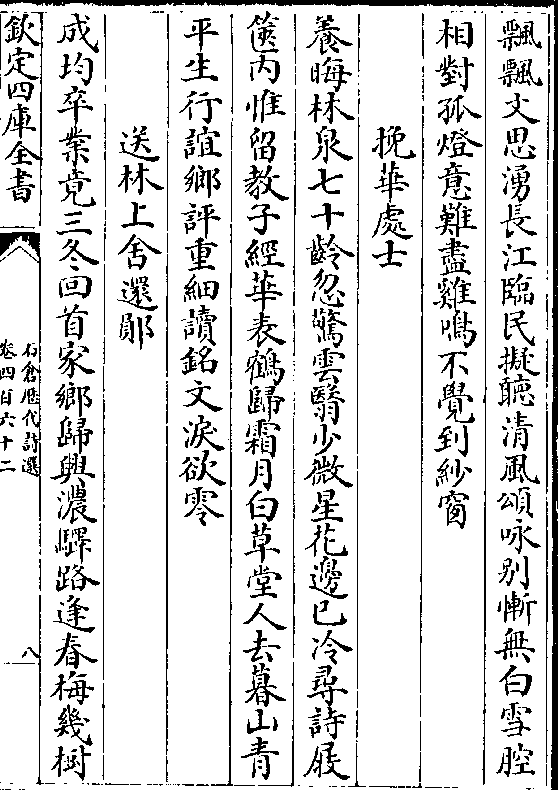 飄飄文思湧長江臨民擬聽清風頌咏别慚無白雪腔
相對孤燈意難盡雞鳴不覺到紗窗
挽華處士
養晦林泉七十齡忽驚雲翳少微星花邊已冷尋詩屐
篋内惟留教子經華表鶴歸霜月白草堂人去暮山青
平生行誼鄉評重細讀銘文淚欲零
送林上舍還鄖
成均卒業竟三冬回首家鄉歸興濃驛路逢春梅幾樹
欽定四庫全書
石倉歷代詩選
卷四百六十二
八